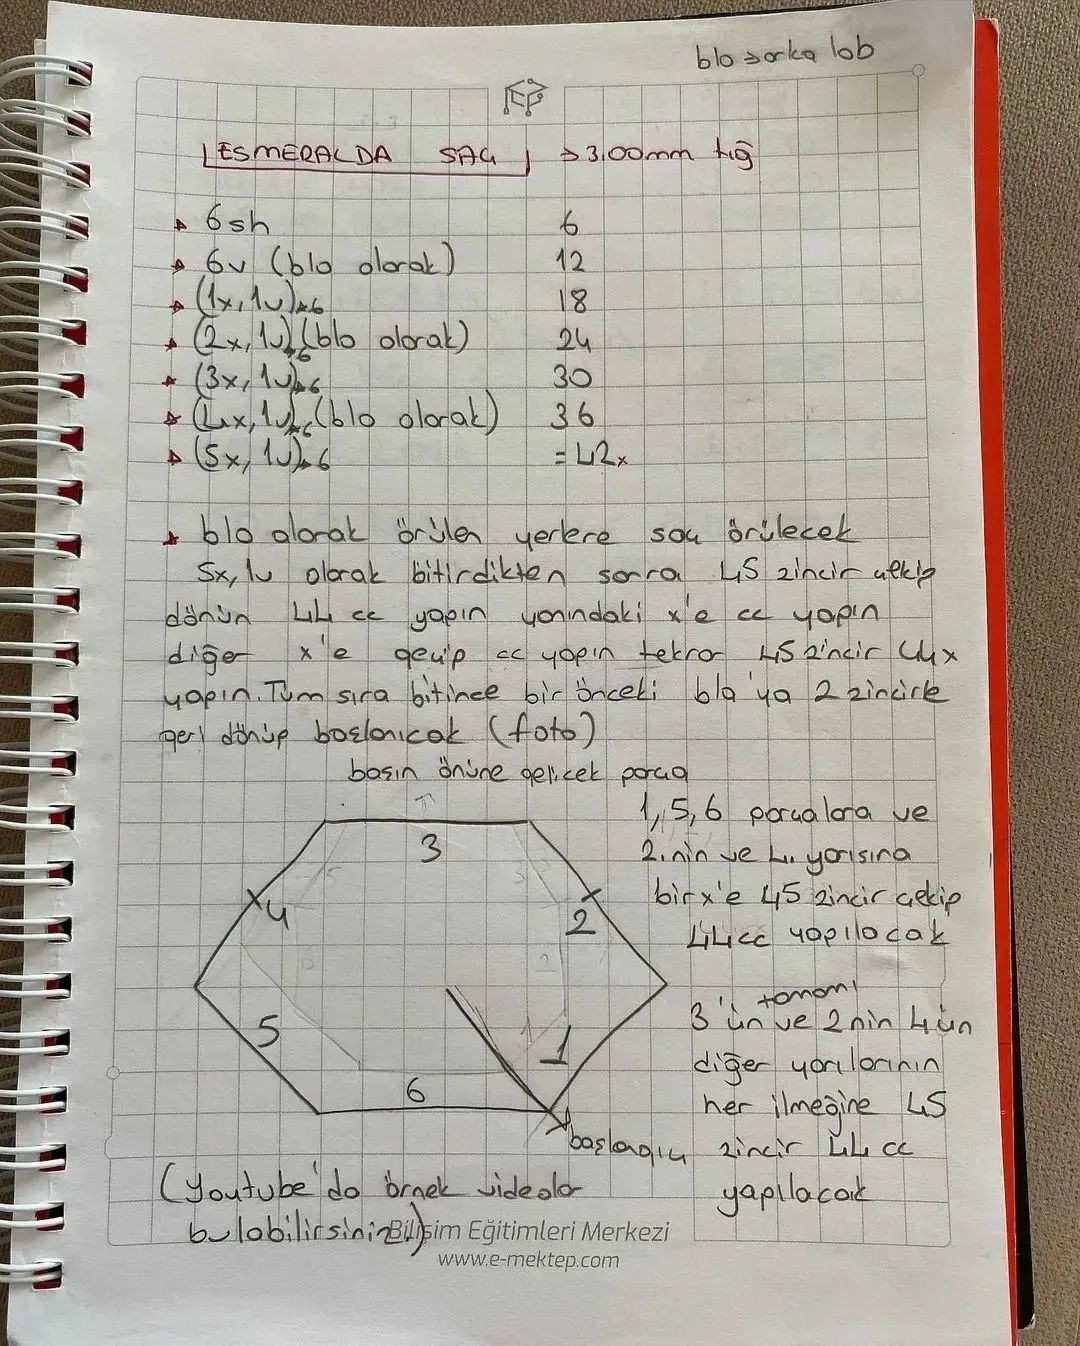 blo → arka lob
ESMERALDA SAÇ → 3.00mm tığ
6sh 6
6v (blo olarak) 12
(1x, 1v)*6 18
(2x, 1v)*6 (blo olarak) 24
(3x, 1v)*6 30
(4x, 1v)*6 (blo olarak) 36
(5x, 1v)*6 = 42x
* blo olarak örülen yerlere saç örülecek
5x, 1v olarak bitirdikten sonra 45 zincir çekip
dönün 44 cc yapın yanındaki x'e cc yapın
diğer x'e geçip cc yapın tekrar 45 zincir 44x
yapın. Tüm sıra bitince bir önceki blo'ya 2 zincirle
geri dönüp başlanıcak (foto)
başın önüne gelicek parça
3
4
2
5
1
6
başlangıç
1, 5, 6 parçalara ve
2.nin ve 4. yarısına
bir x'e 45 zincir çekip
44cc yapılacak
3'ün tamamı ve 2nin 4ün
diğer yarılarının
her ilmeğine 45
zincir 44 cc
yapılacak
(Youtube'da örnek videolar
bulabilirsiniz)
Bilişim Eğitimleri Merkezi
www.e-mektep.com